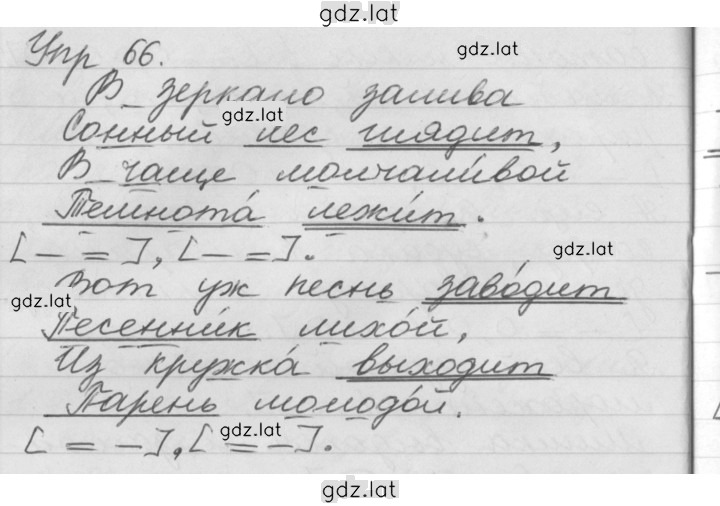 gdz.lat
Упр 66. gdz.lat
В зеркало залива
gdz.lat
Сонный лес глядит,
В чаще молчали́вой
Темнота́ лежи́т.
[— =], [— =]. gdz.lat
gdz.lat
Вот уж песнь заво́дит
Песенни́к лихо́й,
Из кружка́ выходит
Парень молодо́й.
[= —], [= —]. gdz.lat
gdz.lat